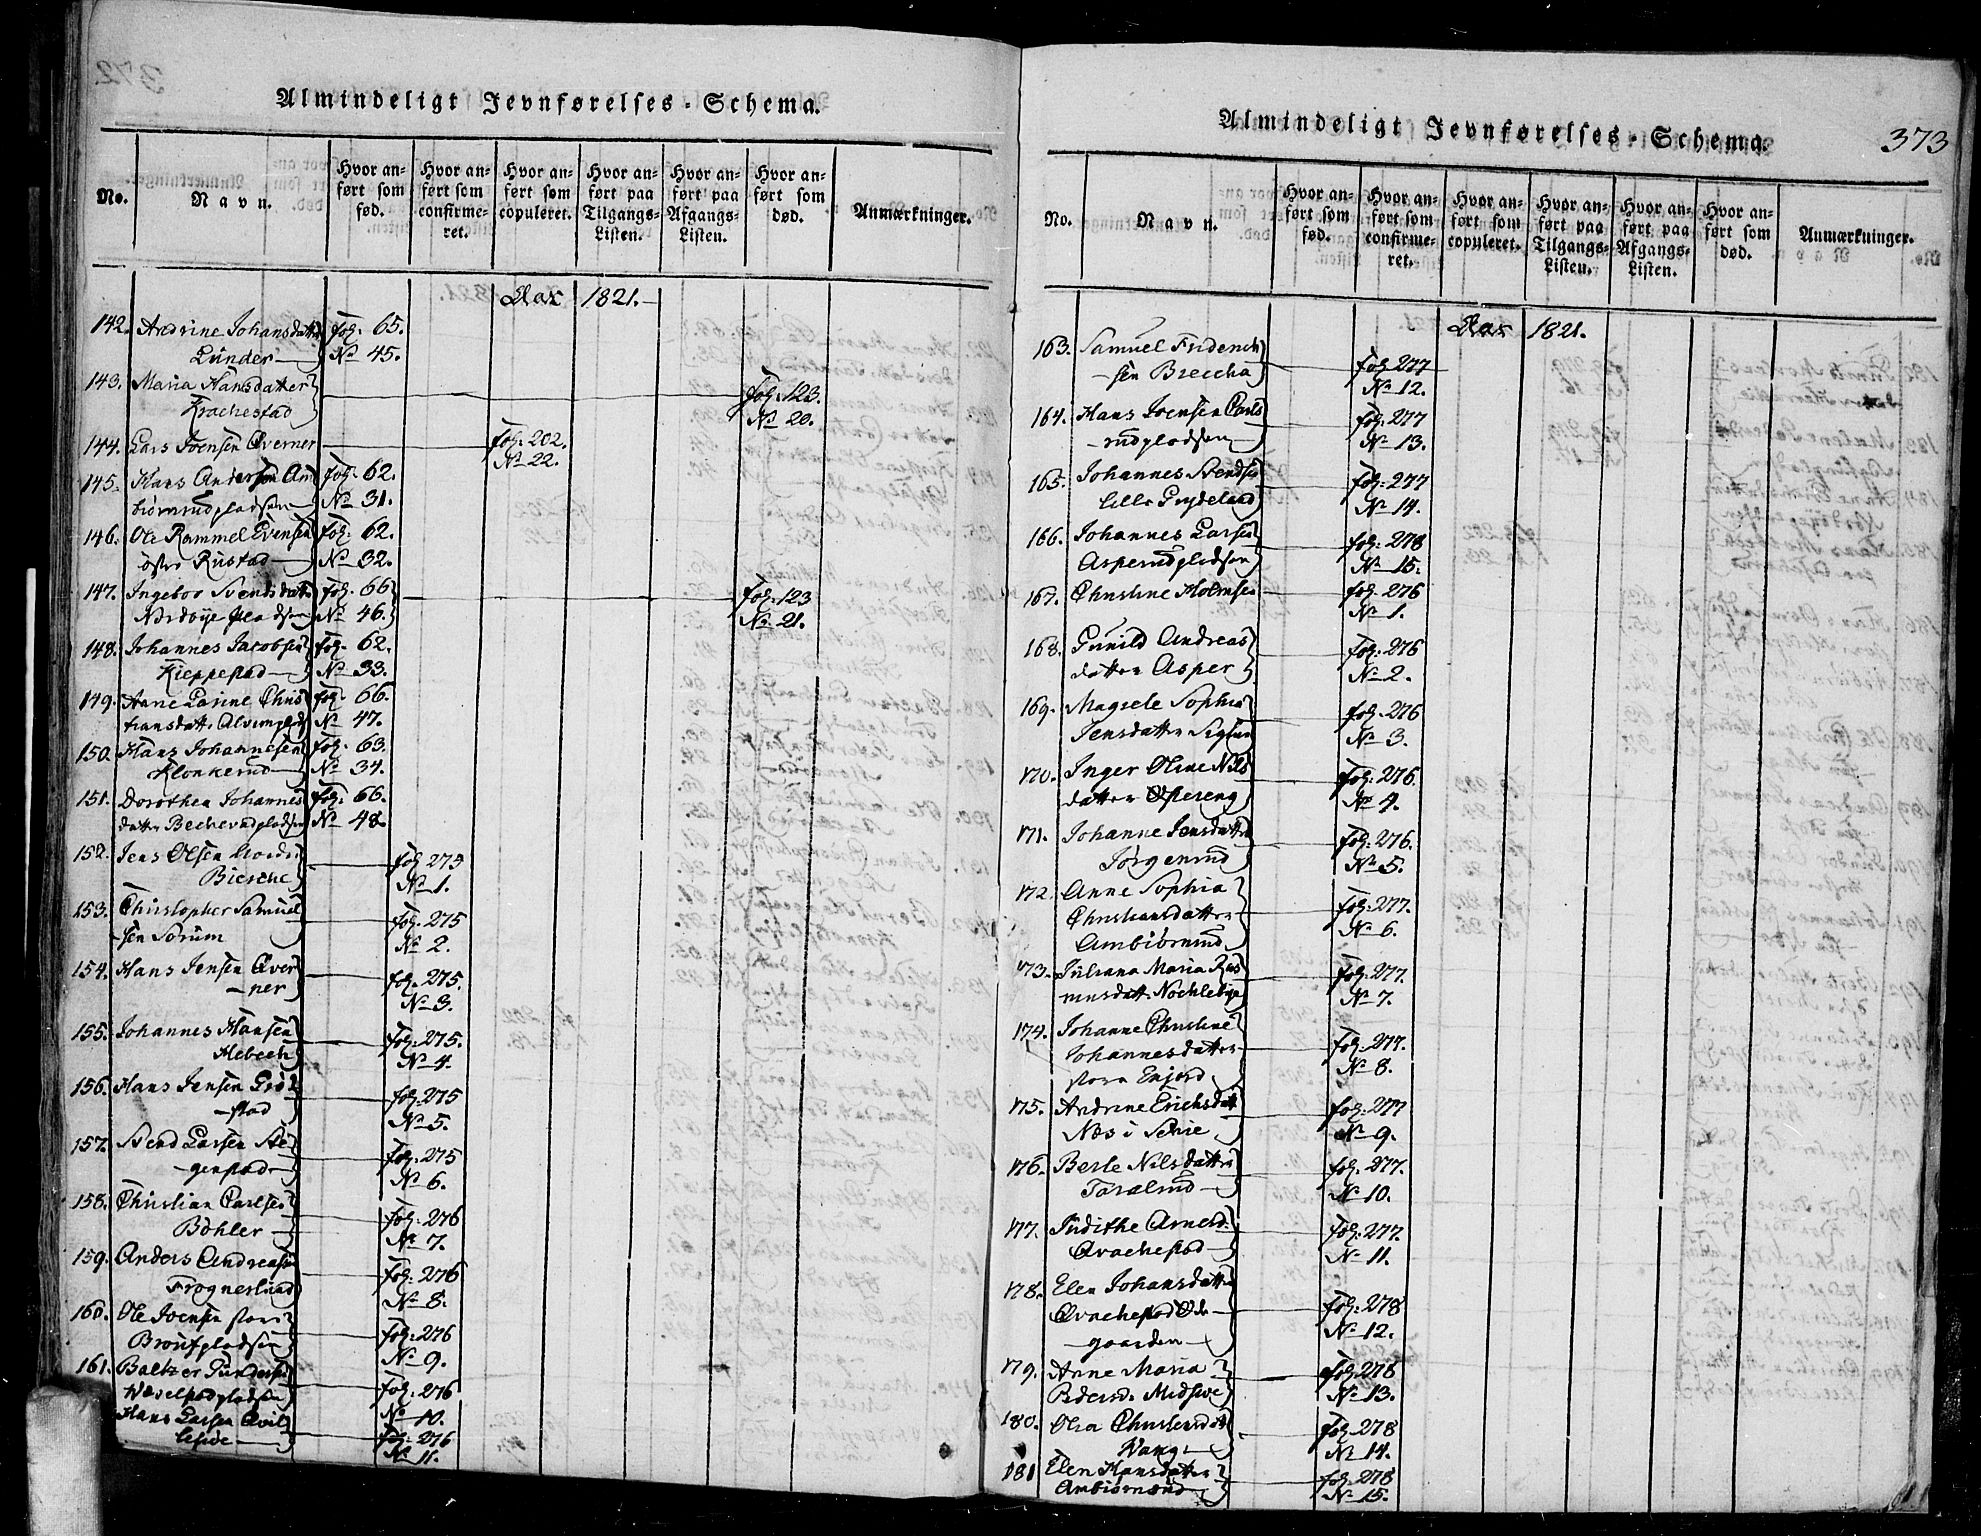 Almindeligt Jevnførelses-Schema.
No. Navn. Hvor anført som fød. Hvor anført som confirmeret. Hvor anført som copuleret. Hvor anført paa Tilgangs-Listen. Hvor anført paa Afgangs-Listen. Hvor anført som død. Anmærkninger.
Aar 1821.
142. Andrine Johansdatter fol: 65.
Lunder No 45.
143. Maria Hansdatter fol: 123.
Krachestad No 20.
144. Lars Joensen Qverner fol: 202.
No 22.
145. Hans Andersen Am fol: 62.
biørnrudpladsen No 31.
146. Ole Rammel Evensen fol: 62.
østre Rustad No 32.
147. Ingebor Svendsdatt fol: 66 fol: 123
Nordbye Pladsen No 46. No 21.
148. Johannes Jacobsen fol: 62.
Kieppestad No 33.
149. Anne Larine Chris fol: 66.
tiansdattr Alvimplads No 47.
150. Hans Johannesen fol: 63.
Klonkerud No 34.
151. Dorothea Johannes fol: 66.
datter Becherudpladsen No 48.
152. Jens Olsen Nordre fol 275
Biersche No 1.
153. Christopher Samuel fol: 275
sen Sørum No 2.
154. Hans Jensen Qver fol: 275.
ner No 3.
155. Johannes Hansen fol: 275.
Melbech No 4.
156. Hans Jensen Grø fol: 275
stad No 5.
157. Svend Larsen He fol: 275
genstad No 6.
158. Christian Carlsen fol: 276
Bøhler No 7.
159. Anders Andreasen fol: 276
Frognerlund No 8.
160. Ole Joensen store fol: 276
Broutpladsen No 9.
161. Baltzer Gundersen fol: 276
Weselstadpladsen No 10.
Hans Larsen Qvil fol: 276
lesjøe No 11.
Almindeligt Jevnførelses-Schema. 373
No. Navn. Hvor anført som fød. Hvor anført som confirmeret. Hvor anført som copuleret. Hvor anført paa Tilgangs-Listen. Hvor anført paa Afgangs-Listen. Hvor anført som død. Anmærkninger.
Aar 1821.
163. Samuel Friderich fol 277
sen Breecha No 12.
164. Hans Joensen Carls fol: 277
rudpladsen No 13.
165. Johannes Svendsen fol: 277
lille Grydeland No 14.
166. Johannes Larsen fol: 278
Asperudpladsen No 15.
167. Christine Holmsen fol: 276
No 1.
168. Gunild Andreas fol: 276
datter Asper No 2.
169. Magrete Sophia fol: 276
Jensdatter No 3.
170. Inger Oline Nils fol: 276.
datter Ospereng No 4.
171. Johanne Jensdatter fol: 276.
Jørgenrud No 5.
172. Anne Sophia
Christiansdatter fol: 277.
Ambiørnrud No 6.
173. Juliana Maria Ras fol: 277.
musdattr Nochlebye No 7.
174. Johanne Christine
Johannesdatter fol: 277.
store Enjord No 8.
175. Andrine Erichsdatt fol: 277
Næs i Schie No 9.
176. Berte Nilsdatter fol: 277.
Taralrud No 10.
177. Judithe Arnesd: fol: 277.
Qvachestad No 11.
178. Elen Johansdatter
Qvachestad Øde fol: 278
gaarden No 12.
179. Anne Maria fol: 278
Pedersd: Midsive No 13.
180. Olia Christensdatt fol. 278
Wang No 14.
181 Elen Hansdatter fol: 278
Ambiørnrud No 15.